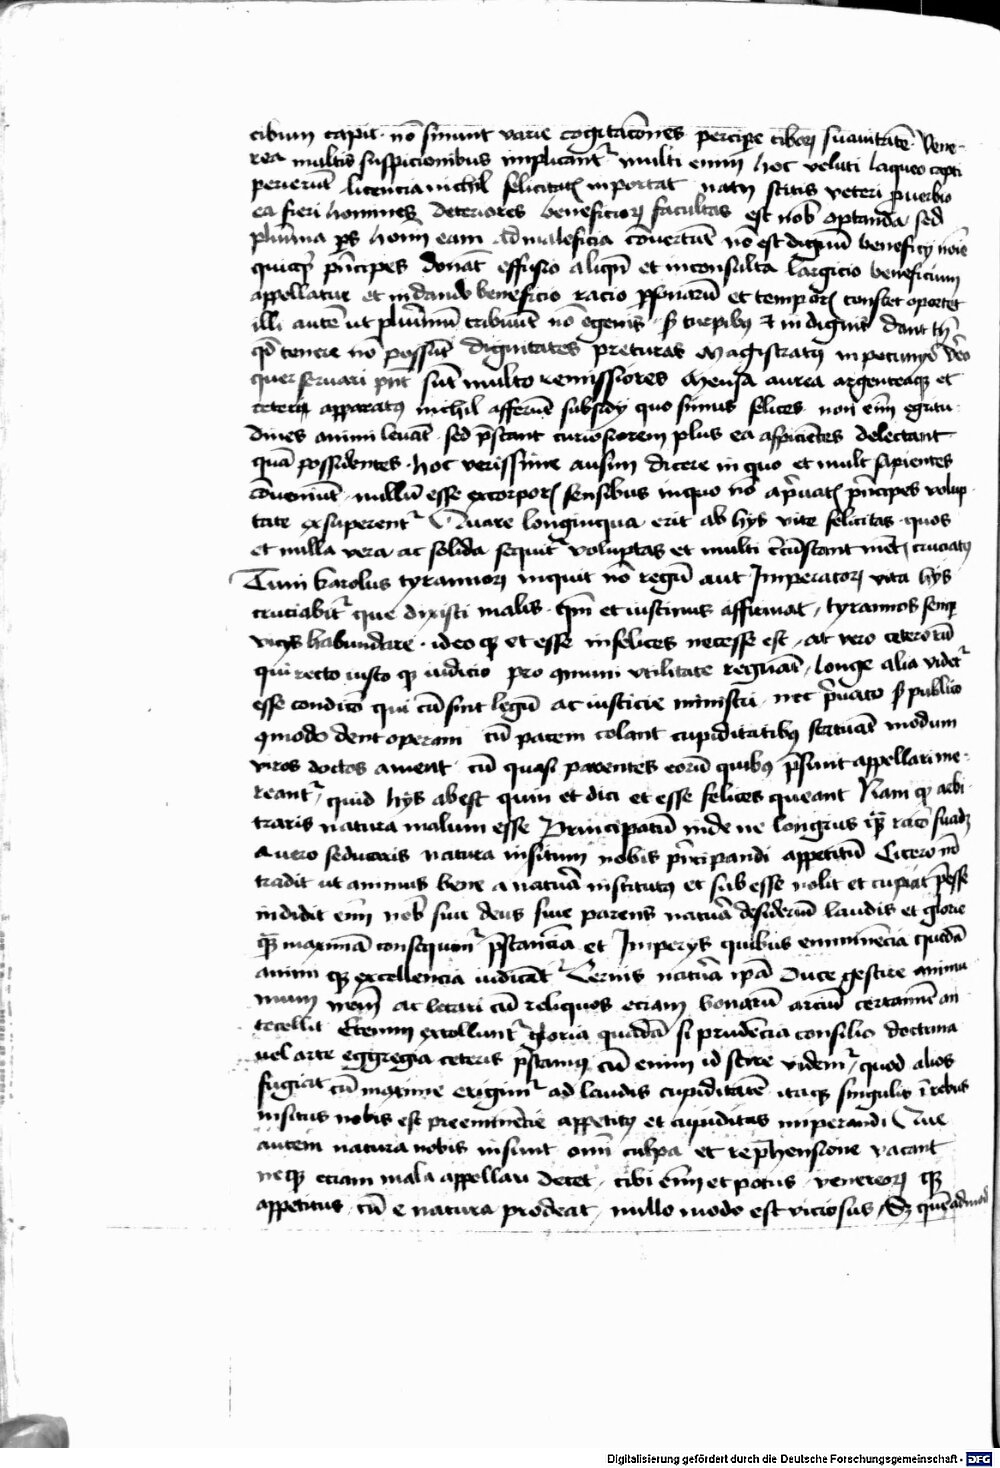 cibum capit · nō sinunt varie cogitacōnes percipe ciboꝝ suauitatē · Vene-
rea multis suspicionibus implicant᷑ multi enim hoc veluti laqueo capti
perierūt licencia nichil felicitatꝭ inportat natꝫ scitis veteri ꝓuerbio
ea fieri homines deteriores beneficioꝝ facultas est nob̄ optanda sed
plurima ps hominū eam ad maleficia cōuertūt nō est dignū beneficij noīe
quicq̄ prīcipes donāt effusio aliqn̄ et inconsulta largicio beneficium
appellatur et in dando beneficio racio ꝑsonarū et tempoꝝ constet oportet
illi autē ut plurimū tribuūt nō egenis sꝫ turpibꝰ et indignis dant
qd̄ tenere nō possūt dignitates preturas magistratꝰ
seruari pn̄t sūt multo remissiores mensa aurea argenteaqꝫ et
ceteri apparatꝰ nichil afferūt subsidij quo simus felices non enī egritu-
dines animi leuāt sed prestant curiosiorem plus ea aspiciētes delectant
quā possidentes · hoc verissime ausim dicere in quo et multi sapientes
cōueniūt nullū esse ex corporꝭ sensibus in quo nō a priuatꝭ principes volup-
tate exsuperent᷑ Quare longinqua erit ab hijs vite felicitas quos
et nulla vera ac solida sequit᷑ voluptas et multi circūstant cruciatꝰ
Tum karolus tyrannoꝝ inquit nō regū aut Imperatoꝝ vita hijs
cruciabit᷑ que dixisti malis · qm̄ et iustinus affirmat / tyrannos semp
vicijs habundare · ideo qꝫ et esse infelices necesse est / at vero ceteroꝝ
qui recto iusto qꝫ iudicio pro cōmuni vtilitate regnāt / longe alia videt᷑
esse condicō qui cū sint legū ac iusticie ministri · nec priuato sꝫ publico
cōmodo dent operam cū pacem colant cupiditatibꝰ statuāt modum
viros doctos ament · cū quasi parentes eorū quibꝰ presunt appellari me-
reant᷑ / quid hijs abest quin et dici et esse felices queant Nam qꝫ arbi-
traris natura malum esse Principatū inde ne longius
a vero seducaris natura insitum nobis prīcipandi appetitū Cicero
tradit ut animus bene a natura institutꝰ et subesse nolit et cupiat preesse
indidit enī nob̄ siue deus siue parens natura desideriū laudis et glorie
maximā consequim᷑ prestancia et Imperijs quibus eminencia quedā
animi qꝫ excellencia iudicat᷑ Cernis natura ipā duce gestire
ac letari cū reliquos eciam bonarū arciū certamine an-
tecellit Etenim extollunt᷑ gloria quadā si prudēcia consilio doctrina
uel arte eggregia ceteris prestamꝰ cū enim id scire videmur / quod alios
fugiat cū maxime erigimur ad laudis cupiditatē itaqꝫ singulis ī rebus
insitus nobis est preeminēcie appetitꝰ et cupiditas imperandi Que
autem natura nobis insunt omī culpa et reprehensione vacant
neqꝫ eciam mala appellari decet · cibi enī et potus venereoꝝ qꝫ
appetitus cū e natura prodeat / nullo modo est viciosus / Sꝫ quēadmod̄
Digitalisierung gefördert durch die Deutsche Forschungsgemeinschaft - DFG